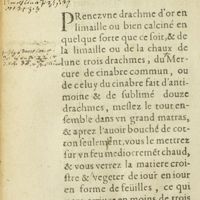 PRenezvne drachme d'or en
limaille ou bien calciné en
quelque sorte que ce soit, & de
la limaille ou de la chaux de
lune trois drachmes, du Mer-
cure de cinabre commun, ou
de celuy du cinabre fait d'anti-
moine & de sublimé douze
drachmes, meslez le tout en-
semble dans vn grand matras,
& aprez l'auoir bouché de cot-
ton seulemēt, vous le mettrez
sur vn feu mediocremēt chaud,
& vous verrez la matiere crois-
stre & vegeter de iour en iour
en forme de feuilles, ce qui
en moins de trois